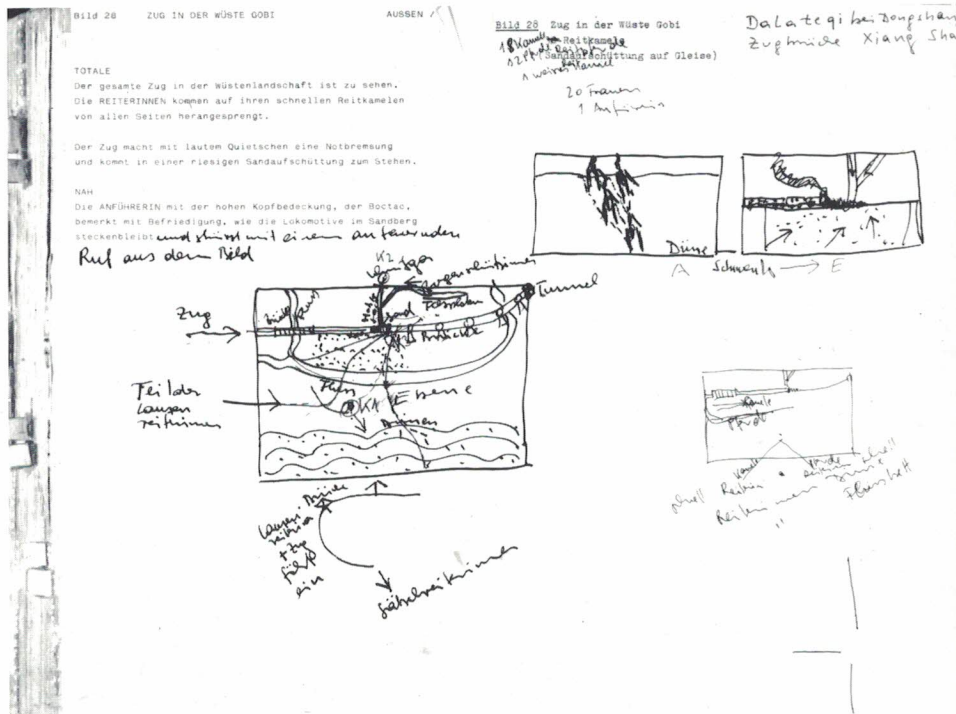 Bild 28 ZUG IN DER WÜSTE GOBI AUSSEN /
TOTALE
Der gesamte Zug in der Wüstenlandschaft ist zu sehen.
Die REITERINNEN kommen auf ihren schnellen Reitkamelen
von allen Seiten herangesprengt.
Der Zug macht mit lautem Quietschen eine Notbremsung
und kommt in einer riesigen Sandaufschüttung zum Stehen.
NAH
Die ANFÜHRERIN mit der hohen Kopfbedeckung, der Boctac,
bemerkt mit Befriedigung, wie die Lokomotive im Sandberg
steckenbleibt und stürzt mit einem anfeuernden
Ruf aus dem Bild
Bild 28 Zug in der Wüste Gobi
18 Kamele Reitkamele
12 Pferde Reitpferde
(Sandaufschüttung auf Gleise)
1 weisses Kamel
20 Frauen
1 Anführerin
Dalateqi bei Dongshan
Zugbrücke Xiang Sha
Düne
A Schwenk E
K2
Tunnel
Zug
Brücke
Fluss
Sand
Brücke
Teil der
Lanzen
reiterinnen
Fluss
K1 Ebene
Dünen
Lanzen
reiterinnen
+ Zug
fährt
ein
Säbelreiterinnen
Kamele
Pferde
Kamele
Pferde
schnell Reiterinnen schnell
Reiterinnen
Flussbett